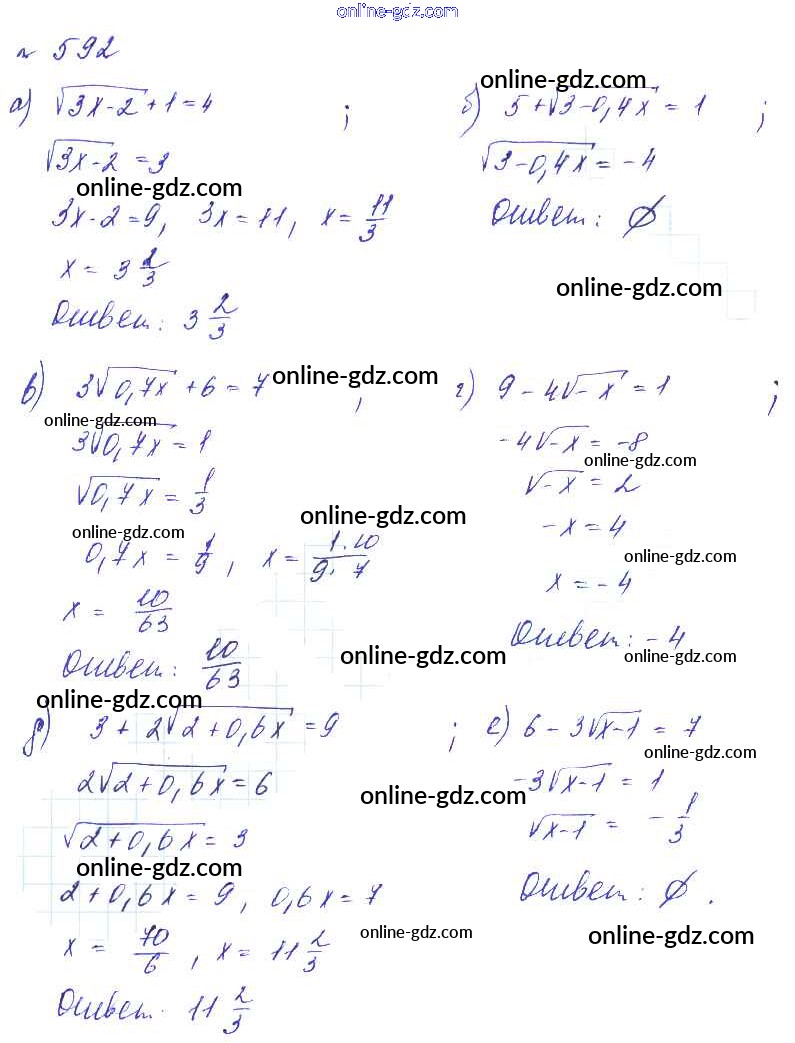 online-gdz.com
№ 592
а) √(3x-2) + 1 = 4 ;
√(3x-2) = 3
online-gdz.com
3x-2 = 9, 3x = 11, x = 11/3
x = 3 2/3
Ответ: 3 2/3
online-gdz.com
б) 5 + √(3-0,4x) = 1 ;
√(3-0,4x) = -4
online-gdz.com
Ответ: ∅
online-gdz.com
в) 3√(0,7x) + 6 = 7 ,
online-gdz.com
online-gdz.com
3√(0,7x) = 1
√(0,7x) = 1/3
online-gdz.com
online-gdz.com
0,7x = 1/9, x = 1·10/9·7
x = 10/63
Ответ: 10/63
online-gdz.com
г) 9 - 4√(-x) = 1 ;
-4√(-x) = -8
online-gdz.com
√(-x) = 2
-x = 4
online-gdz.com
x = -4
Ответ: -4
online-gdz.com
online-gdz.com
д) 3 + 2√(2+0,6x) = 9 ;
2√(2+0,6x) = 6
online-gdz.com
√(2+0,6x) = 3
online-gdz.com
2+0,6x = 9, 0,6x = 7
x = 70/6, x = 11 2/3
online-gdz.com
Ответ. 11 2/3
е) 6 - 3√(x-1) = 7
online-gdz.com
-3√(x-1) = 1
√(x-1) = -1/3
Ответ: ∅.
online-gdz.com